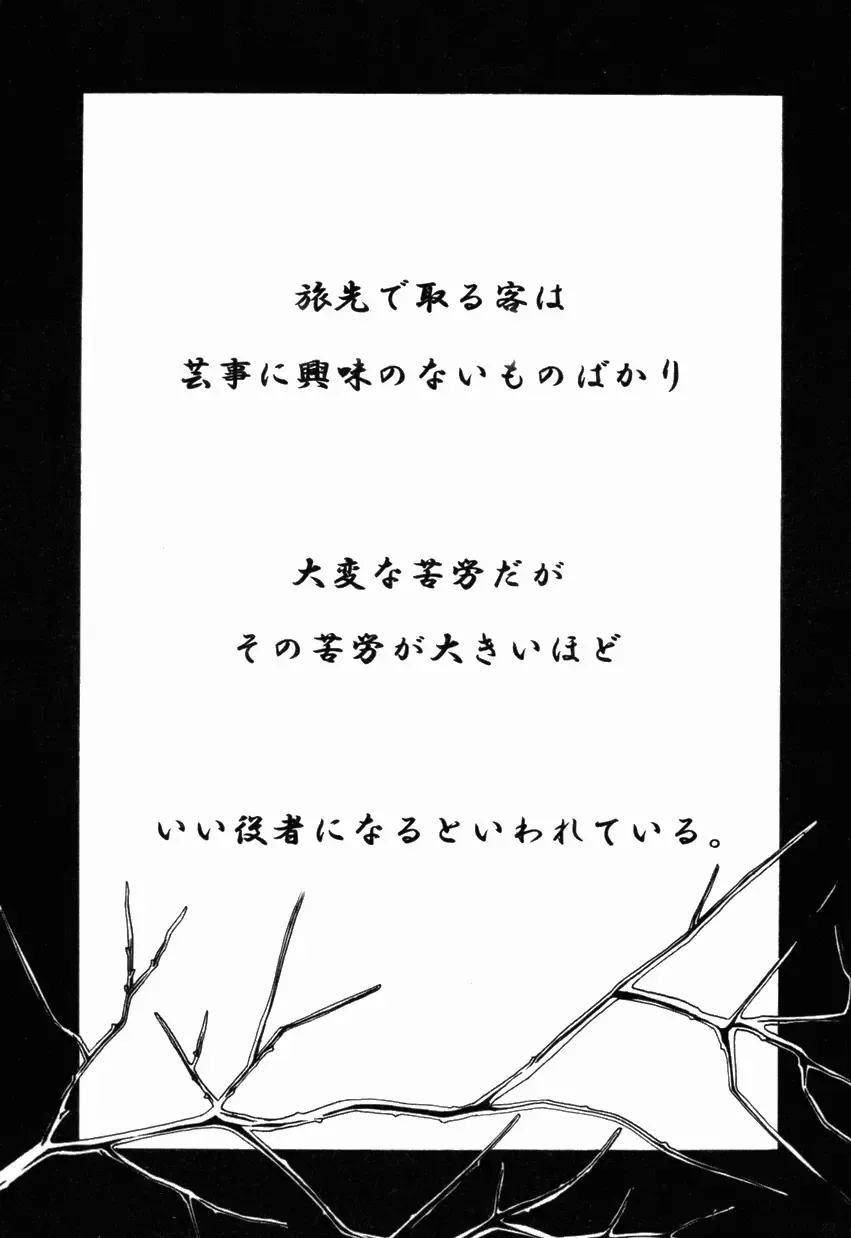 旅先で取る客は
芸事に興味のないものばかり
大変な苦労だが
その苦労が大きいほど
いい役者になるといわれている。